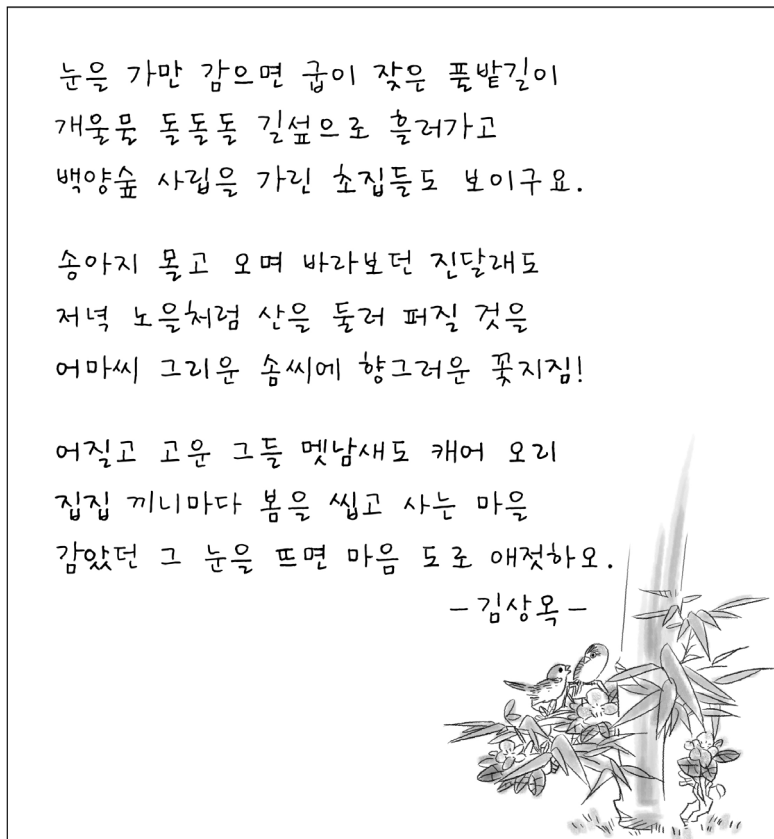 눈을 가만 감으면 굽이 잦은 풀밭길이
개울물 돌돌돌 길섶으로 흘러가고
백양숲 사립을 가린 초집들도 보이구요.
송아지 몰고 오며 바라보던 진달래도
저녁 노을처럼 산을 둘러 퍼질 것을
어마씨 그리운 솜씨에 향그러운 꽃지짐!
어질고 고운 그들 멧남새도 캐어 오리
집집 끼니마다 봄을 씹고 사는 마을
감았던 그 눈을 뜨면 마음 도로 애젓하오.
-김상옥-